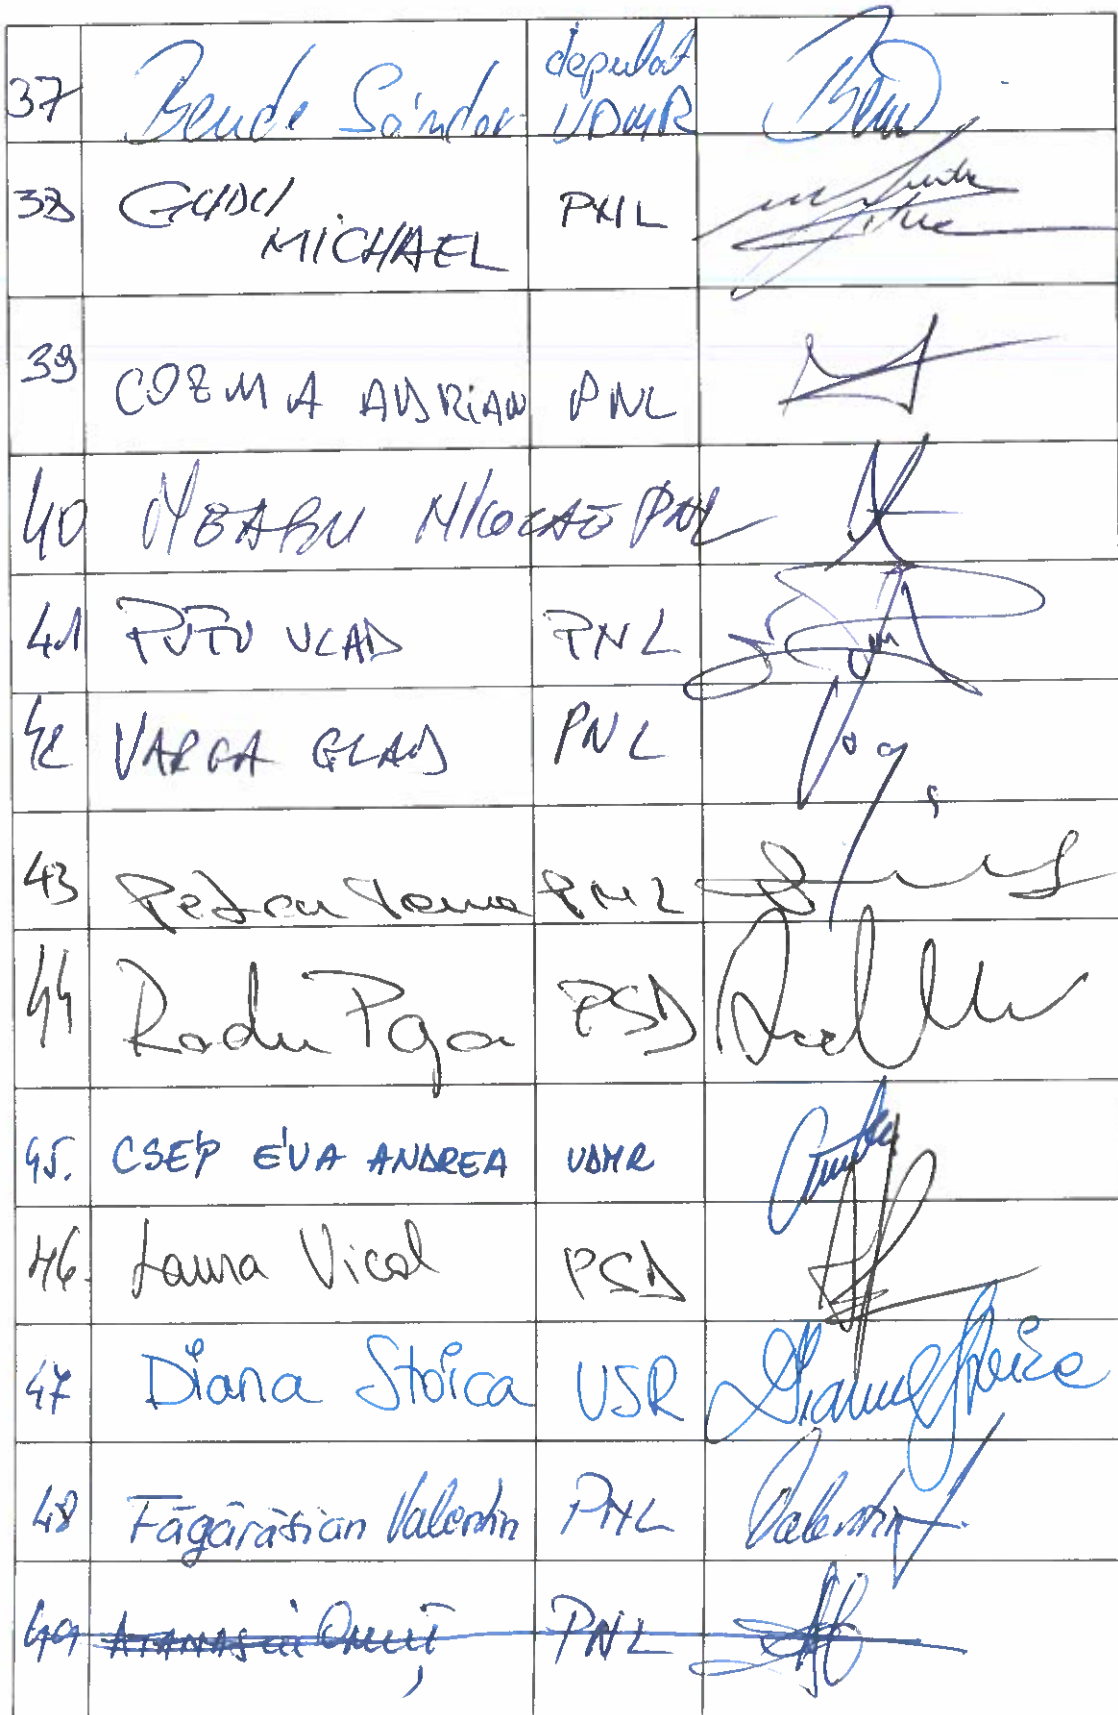 37 Bende Sándor deputat UDMR
38 GUDU MICHAEL PNL
39 COZMA ADRIAN PNL
40 NEAGU NICOLAE PNL
41 PUȚU VLAD PNL
42 VARGA GLAD PNL
43 PNL
44 Radu Popa PSD
45. CSEP ÉVA ANDREA UDMR
46. Laura Vicol PSD
47 Diana Stoica USR Diana Stoica
48 Făgărășian Valentin PNL Valentin
49 PNL